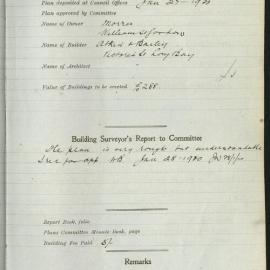 Plan deposited at Council Offices Jan 27 - 1920
Plan approved by Committee
Name of Owner Morris
William St
Name of Builder Atked & Barley
Victoria St Long Bay
Name of Architect
Value of Buildings to be erected £288
Building Surveyor's Report to Committee
The plan is very rough but understandable
I rec for app Jan 28 - 1920
Report Book, folio
Plans Committee Minute Book, page
Building Fee Paid 5/-
Remarks